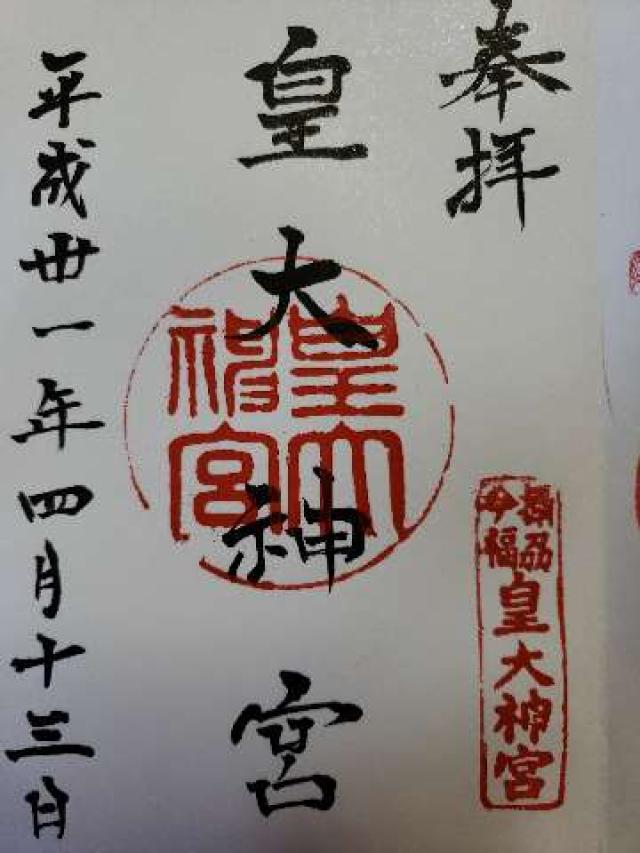 奉拝
皇大神宮
皇大神宮
今福
皇大神宮
平成卅一年四月十三日